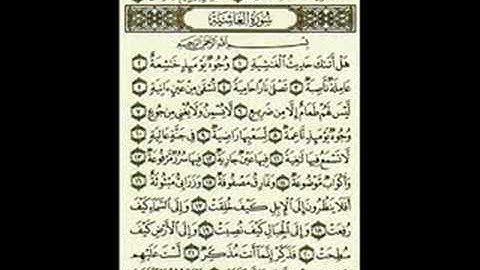 سُورَةُ الغَاشِيَةِ
بِسْمِ اللَّهِ الرَّحْمَٰنِ الرَّحِيمِ
هَلْ أَتَىٰكَ حَدِيثُ الْغَٰشِيَةِ ١ وُجُوهٌ يَوْمَئِذٍ خَٰشِعَةٌ ٢
عَامِلَةٌ نَّاصِبَةٌ ٣ تَصْلَىٰ نَارًا حَامِيَةً ٤ تُسْقَىٰ مِنْ عَيْنٍ ءَانِيَةٍ ٥
لَّيْسَ لَهُمْ طَعَامٌ إِلَّا مِن ضَرِيعٍ ٦ لَّا يُسْمِنُ وَلَا يُغْنِي مِن جُوعٍ ٧
وُجُوهٌ يَوْمَئِذٍ نَّاعِمَةٌ ٨ لِّسَعْيِهَا رَاضِيَةٌ ٩ فِي جَنَّةٍ عَالِيَةٍ ١٠
لَّا تَسْمَعُ فِيهَا لَٰغِيَةً ١١ فِيهَا عَيْنٌ جَارِيَةٌ ١٢ فِيهَا سُرُرٌ مَّرْفُوعَةٌ ١٣
وَأَكْوَابٌ مَّوْضُوعَةٌ ١٤ وَنَمَارِقُ مَصْفُوفَةٌ ١٥ وَزَرَابِيُّ مَبْثُوثَةٌ ١٦
أَفَلَا يَنظُرُونَ إِلَى الْإِبِلِ كَيْفَ خُلِقَتْ ١٧ وَإِلَى السَّمَاءِ كَيْفَ
رُفِعَتْ ١٨ وَإِلَى الْجِبَالِ كَيْفَ نُصِبَتْ ١٩ وَإِلَى الْأَرْضِ كَيْفَ
سُطِحَتْ ٢٠ فَذَكِّرْ إِنَّمَا أَنتَ مُذَكِّرٌ ٢١ لَّسْتَ عَلَيْهِم